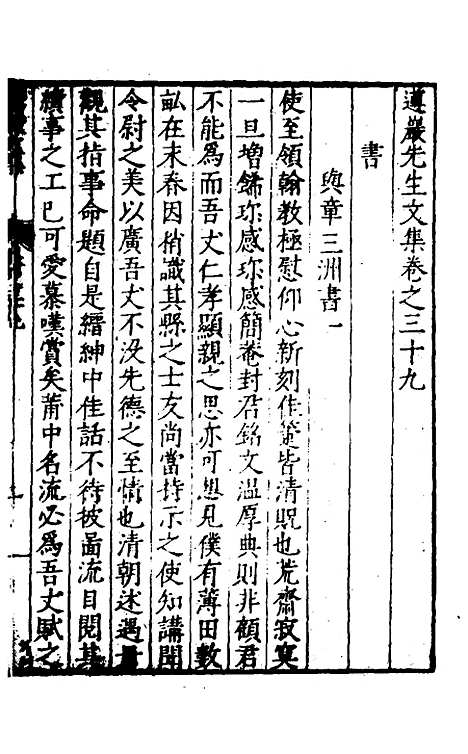 遵巖先生文集卷之三十九
書
與章三洲書一
使至領翰教極慰仰心新刻佳箑皆清貺也荒齋寂寞
一旦增鏽珎感珎感簡菴封君銘文溫厚典則非顧君
不能為而吾丈仁孝顯親之思亦可想見僕有薄田數
畝在末春因稍識其縣之士友尚當持示之使知講聞
令尉之美以廣吾丈不没先德之至情也清朝述遇
觀其指事命題自是縉紳中佳話不待披圖流目閱其
繢事之工已可愛慕嘆賞矣莆中名流必為吾丈賦之